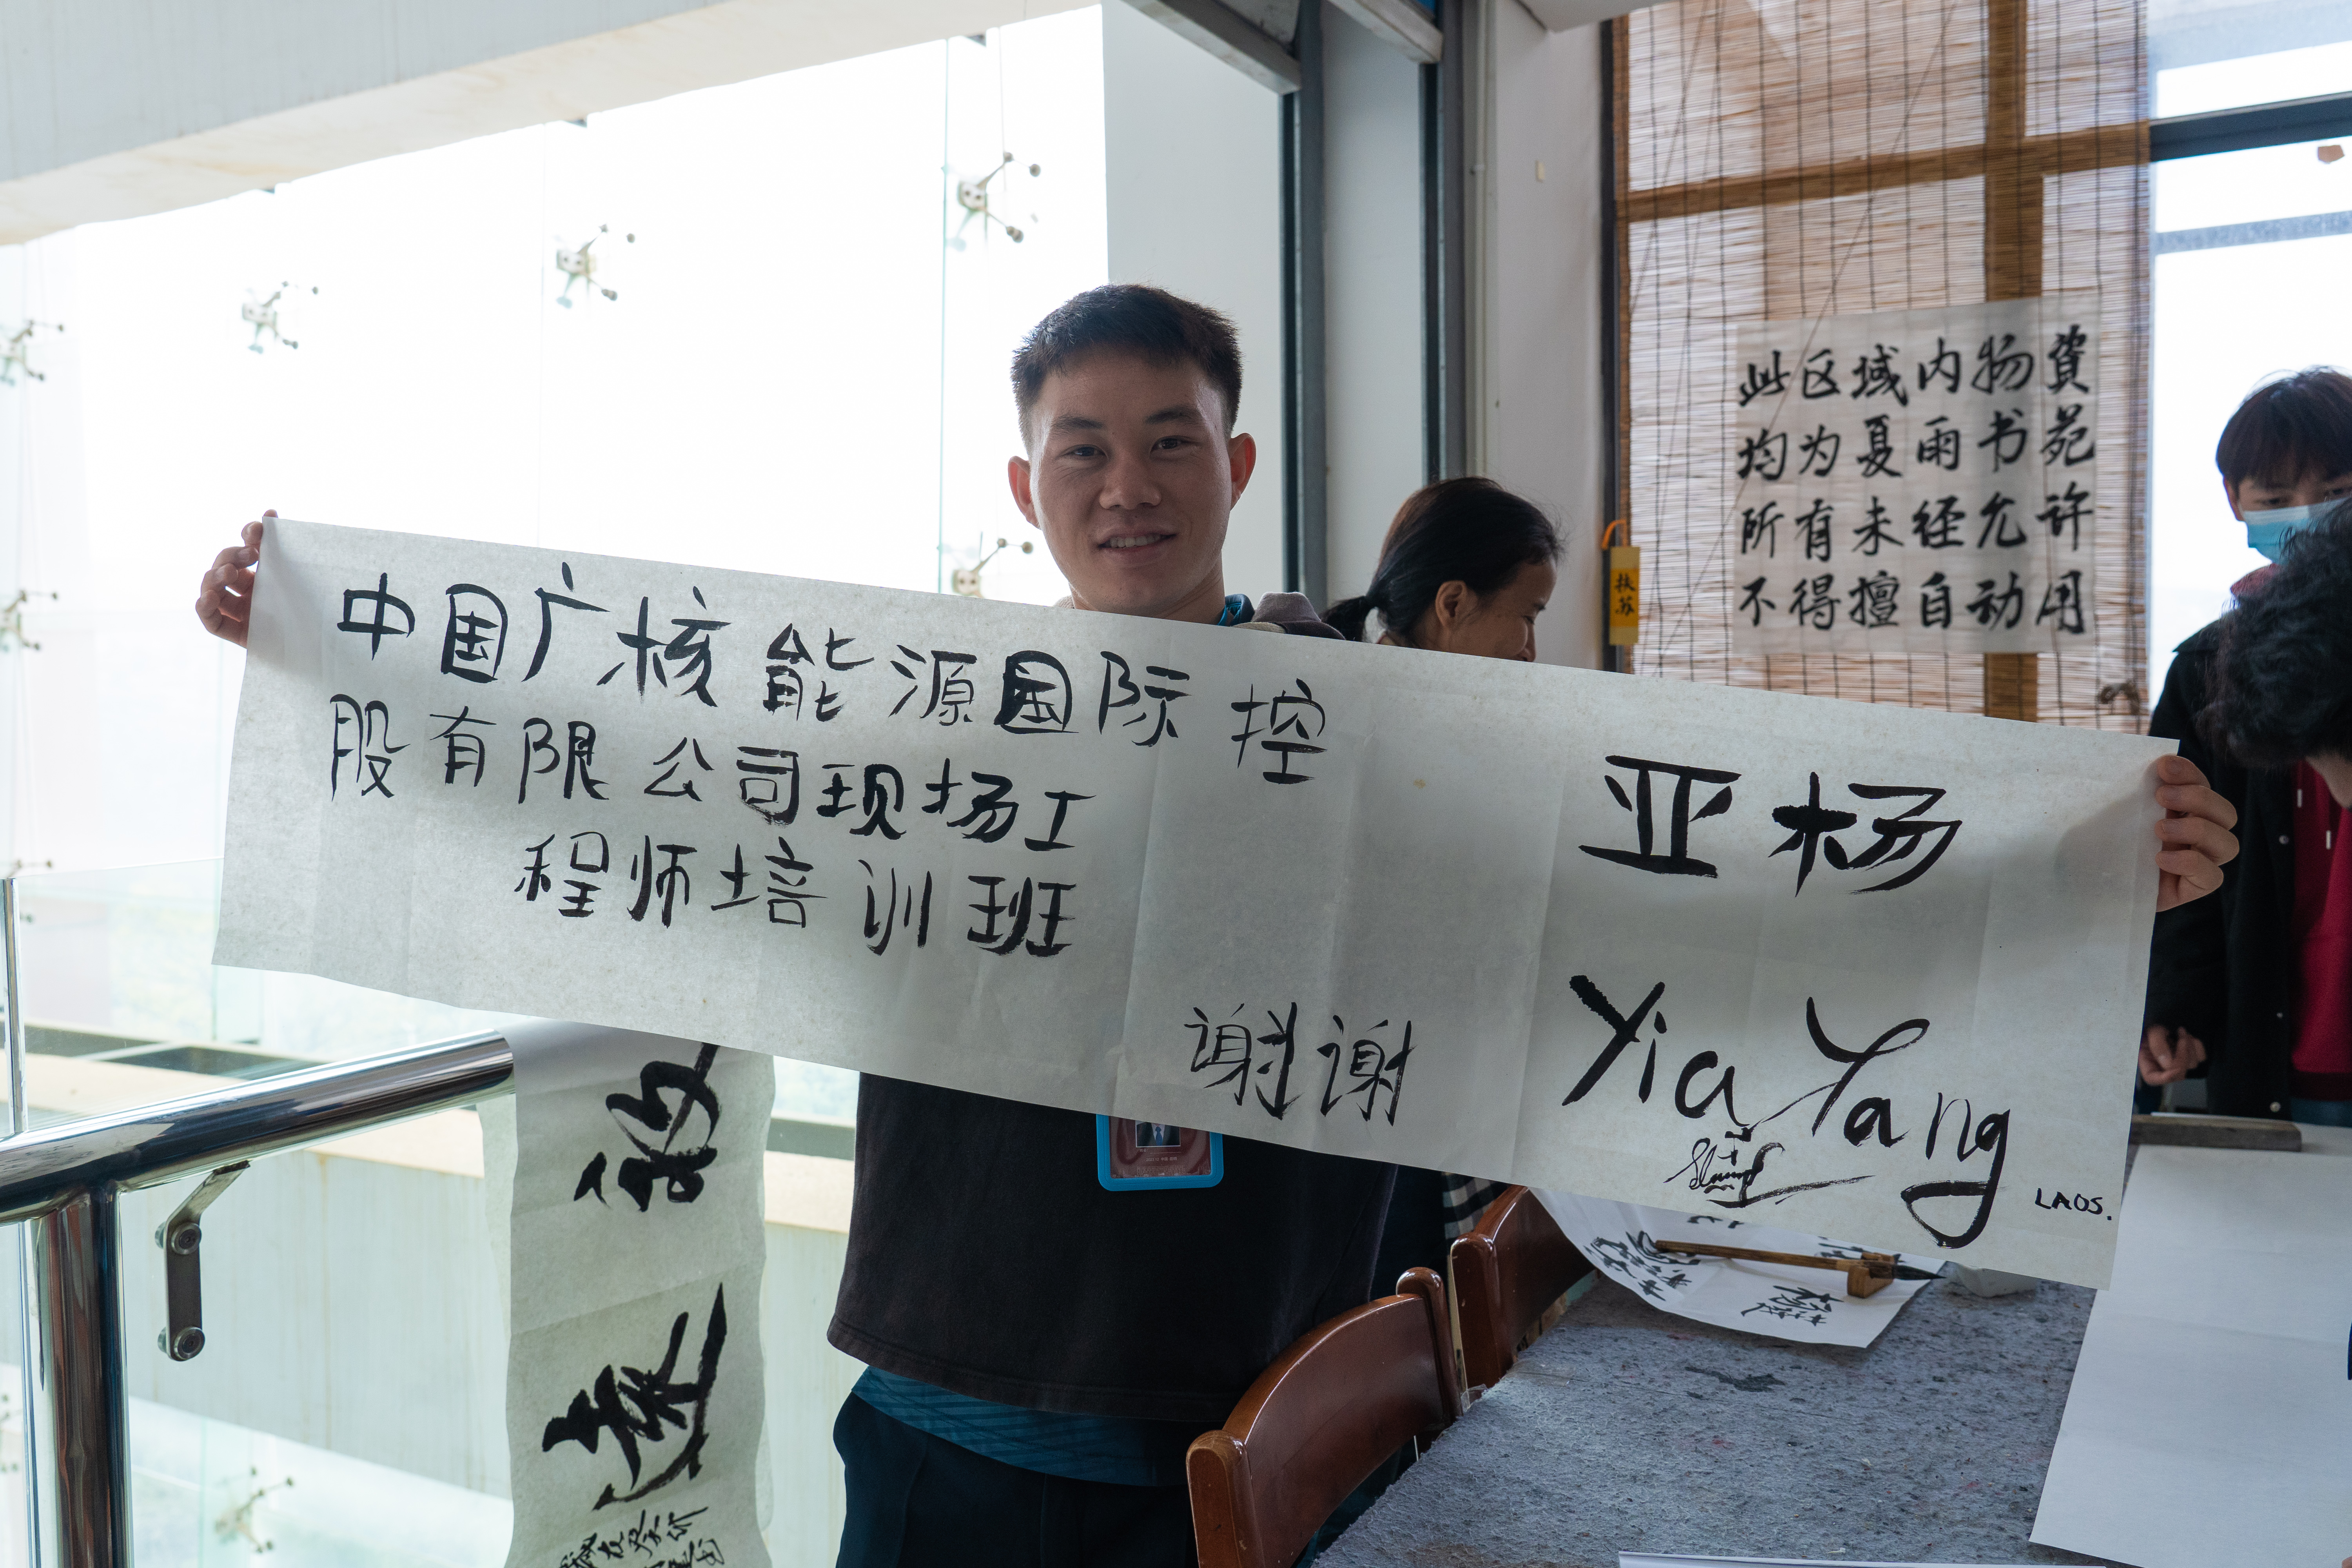 中国广核能源国际控
股有限公司现场工
程师培训班
谢谢
亚杨
Yia Yang
LAOS.
此区域内物資
均为夏雨书苑
所有未经允许
不得擅自动用
扶苏